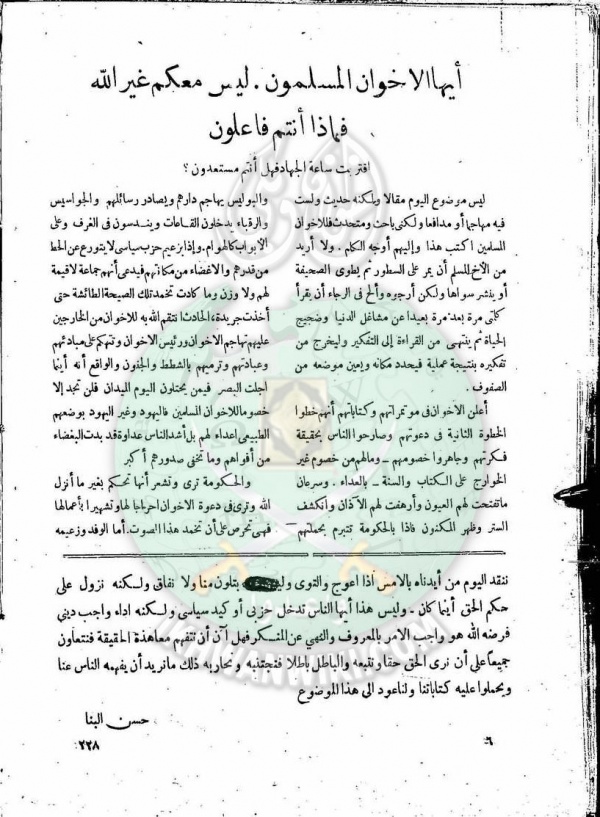 أيها الاخوان المسلمون. ليس معكم غير الله
فماذا أنتم فاعلون
اقتربت ساعة الجهاد فهل أنتم مستعدون ؟
ليس موضوع اليوم مقالا ولكنه حديث ولست
فيه مهاجما أو مدافعا ولكنى باحث ومتحدث فللاخوان
المسلمين اكتب هذا وإليهم أوجه الكلم . ولا أريد
من الأخ المسلم أن يمر على السطور ثم يطوى الصحيفة
أو ينشر سواها ولكن أرجوه وألح فى الرجاء أن يقرأ
كلمتى مرة بعد مرة بعيدا عن مشاغل الدنيا وضجيج
الحياة ثم ينتهى من القراءة إلى التفكير وليخرج من
تفكيره بنتيجة عملية فيحدد مكانه ويعين موضعه من
الصفوف .
أعلن الاخوان فى مؤتمراتهم وكتاباتهم أنهم خطوا
الخطوة الثانية فى دعوتهم وصارحوا الناس بحقيقة
فكرتهم وجاهروا خصومهم – ومالهم من خصوم غير
الخوارج على الكتاب والسنة – بالعداء . وسرعان
ماتفتحت لهم العيون وأرهفت لهم الآذان وانكشف
الستر وظهر المكنون فاذا بالحكومة تتبرم بحملتهم
والبوليس يهاجم دارهم ويصادر رسائلهم والجواسيس
والرقباء يدخلون القاعات ويندسون فى الغرف وعلى
الأبواب كالهوام . وإذا بزعيم حزب سياسى لا يتورع عن الحط
من قدرهم والاغضاء من مكانتهم فيدعى أنهم جماعة لاقيمة
لهم ولا وزن وما كادت تخمد تلك الصيحة الطائشة حتى
أخذت جريدة الحادث انتقم الله به للاخوان من الخارجين
عليهم تهاجم الاخوان ورئيس الاخوان وتتهكم على مبادئهم
وعبادتهم وترميهم بالشطط والجنون والواقع أنه أينما
اجلت البصر فيمن يحتلون اليوم الميدان فلن تجد إلا
خصوما للاخوان المسلمين فاليهود وغير اليهود بوضعهم
الطبيعى اعداء لهم بل أشد الناس عداوة قد بدت البغضاء
من أفواهم وما تخفى صدورهم أكبر
والحكومة ترى وتشعر أنها تحكم بغير ما أنزل
الله وترى فى دعوة الاخوان احراجا لها وتشهيرا بأعمالها
فهى تحرص على أن تخمد هذا الصوت . أما الوفد وزعيمه
ننقد اليوم من أيدناه بالامس اذا اعوج والتوى وليس بتلون منا ولا نفاق ولكنه نزول على
حكم الحق أينما كان – وليس هذا أيها الناس تدخل حزبى أو كيد سياسى ولكنه اداء واجب دينى
فرضه الله هو واجب الامر بالمعروف والنهى عن المنكر فهل آن أن تتفهم معا هذة الحقيقة فنتعاون
جميعا على أن نرى الحق حقا ونتبعه والباطل باطلا فنجتنبه ونحاربه ذلك مانريد أن يفهمه الناس عنا
ويحملوا عليه كتاباتنا ولنا عود الى هذا الموضوع
حسن البنا
٦
٢٢٨
IKHWANWIKI.COM